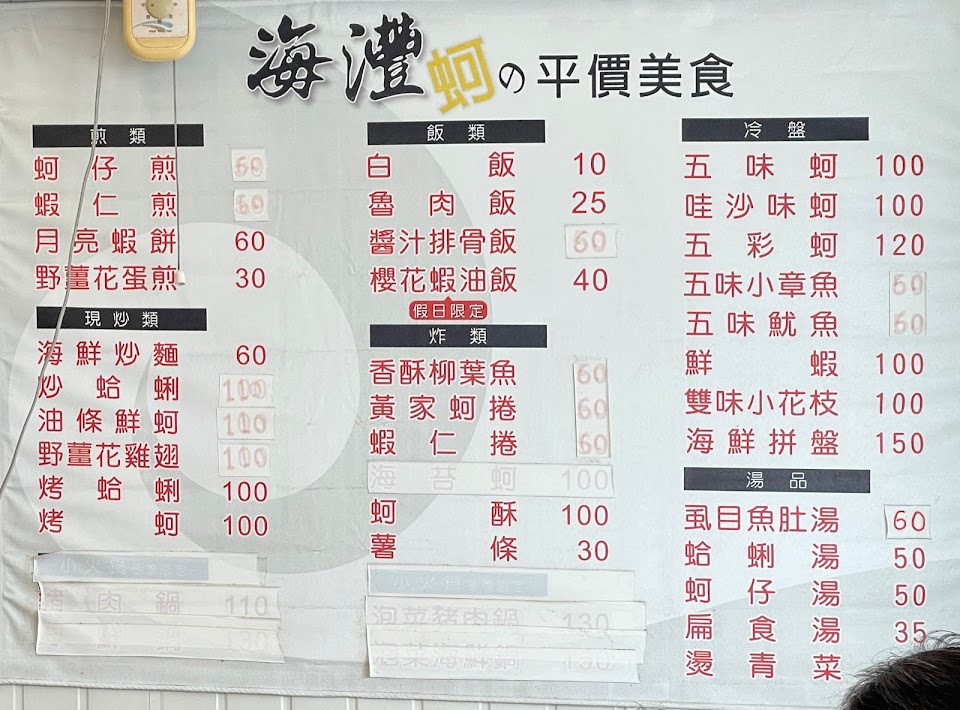 海灃蚵の平價美食
煎類
蚵仔煎 60
蝦仁煎 60
月亮蝦餅 60
野薑花蛋煎 30
現炒類
海鮮炒麵 60
炒蛤蜊 100
油條鮮蚵 100
野薑花雞翅 100
烤蛤蜊 100
烤蚵 100
小火鍋
豬肉鍋 110
130
飯類
白飯 10
魯肉飯 25
醬汁排骨飯 60
櫻花蝦油飯 40
假日限定
炸類
香酥柳葉魚 60
黃家蚵捲 60
蝦仁捲 60
海苔蚵 100
蚵酥 100
薯條 30
小火鍋
泡菜豬肉鍋 130
泡菜海鮮鍋 150
冷盤
五味蚵 100
哇沙味蚵 100
五彩蚵 120
五味小章魚 60
五味魷魚 60
鮮蝦 100
雙味小花枝 100
海鮮拼盤 150
湯品
虱目魚肚湯 60
蛤蜊湯 50
蚵仔湯 50
扁食湯 35
燙青菜